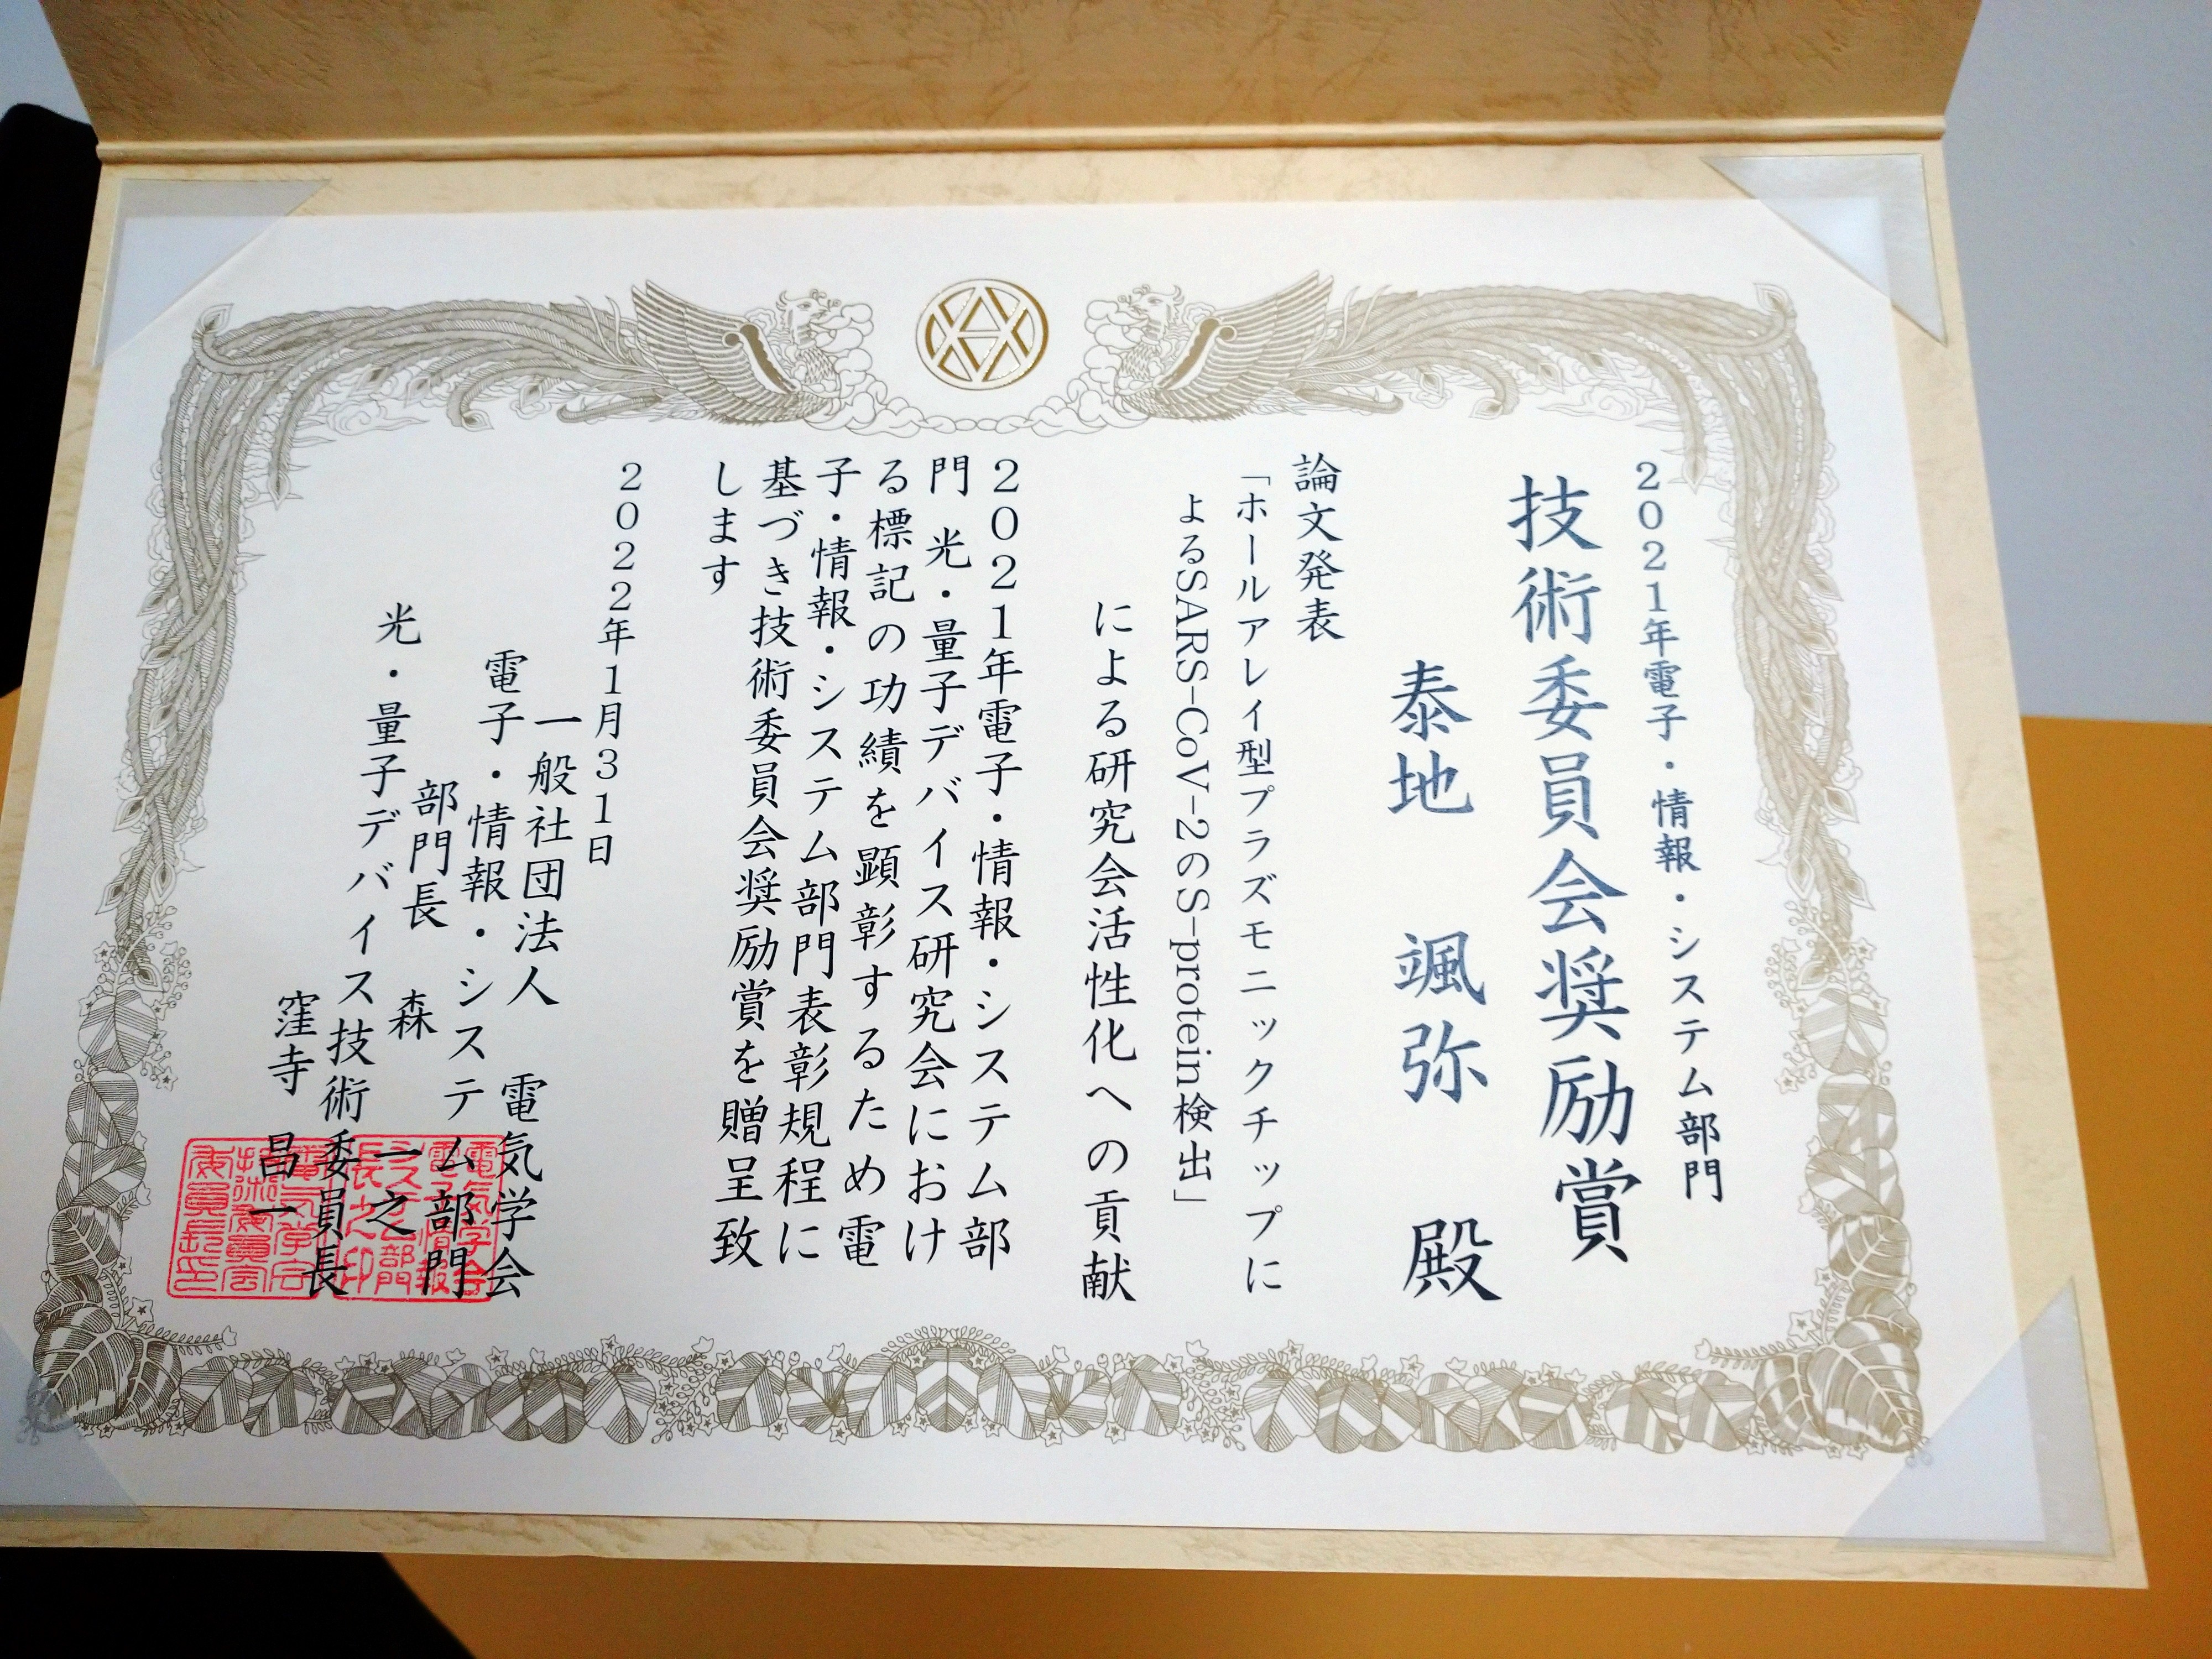 2021年電子・情報・システム部門
技術委員会奨励賞
泰地 颯弥 殿
論文発表
「ホールアレイ型プラズモニックチップに
よるSARS-CoV-2のS-protein検出」
による研究会活性化への貢献
2021年電子・情報・システム部
門 光・量子デバイス研究会におけ
る標記の功績を顕彰するため電
子・情報・システム部門表彰規程に
基づき技術委員会奨励賞を贈呈致
します
2022年1月31日
一般社団法人 電気学会
電子・情報・システム部門
部門長 森 一之
光・量子デバイス技術委員長
窪寺 昌一